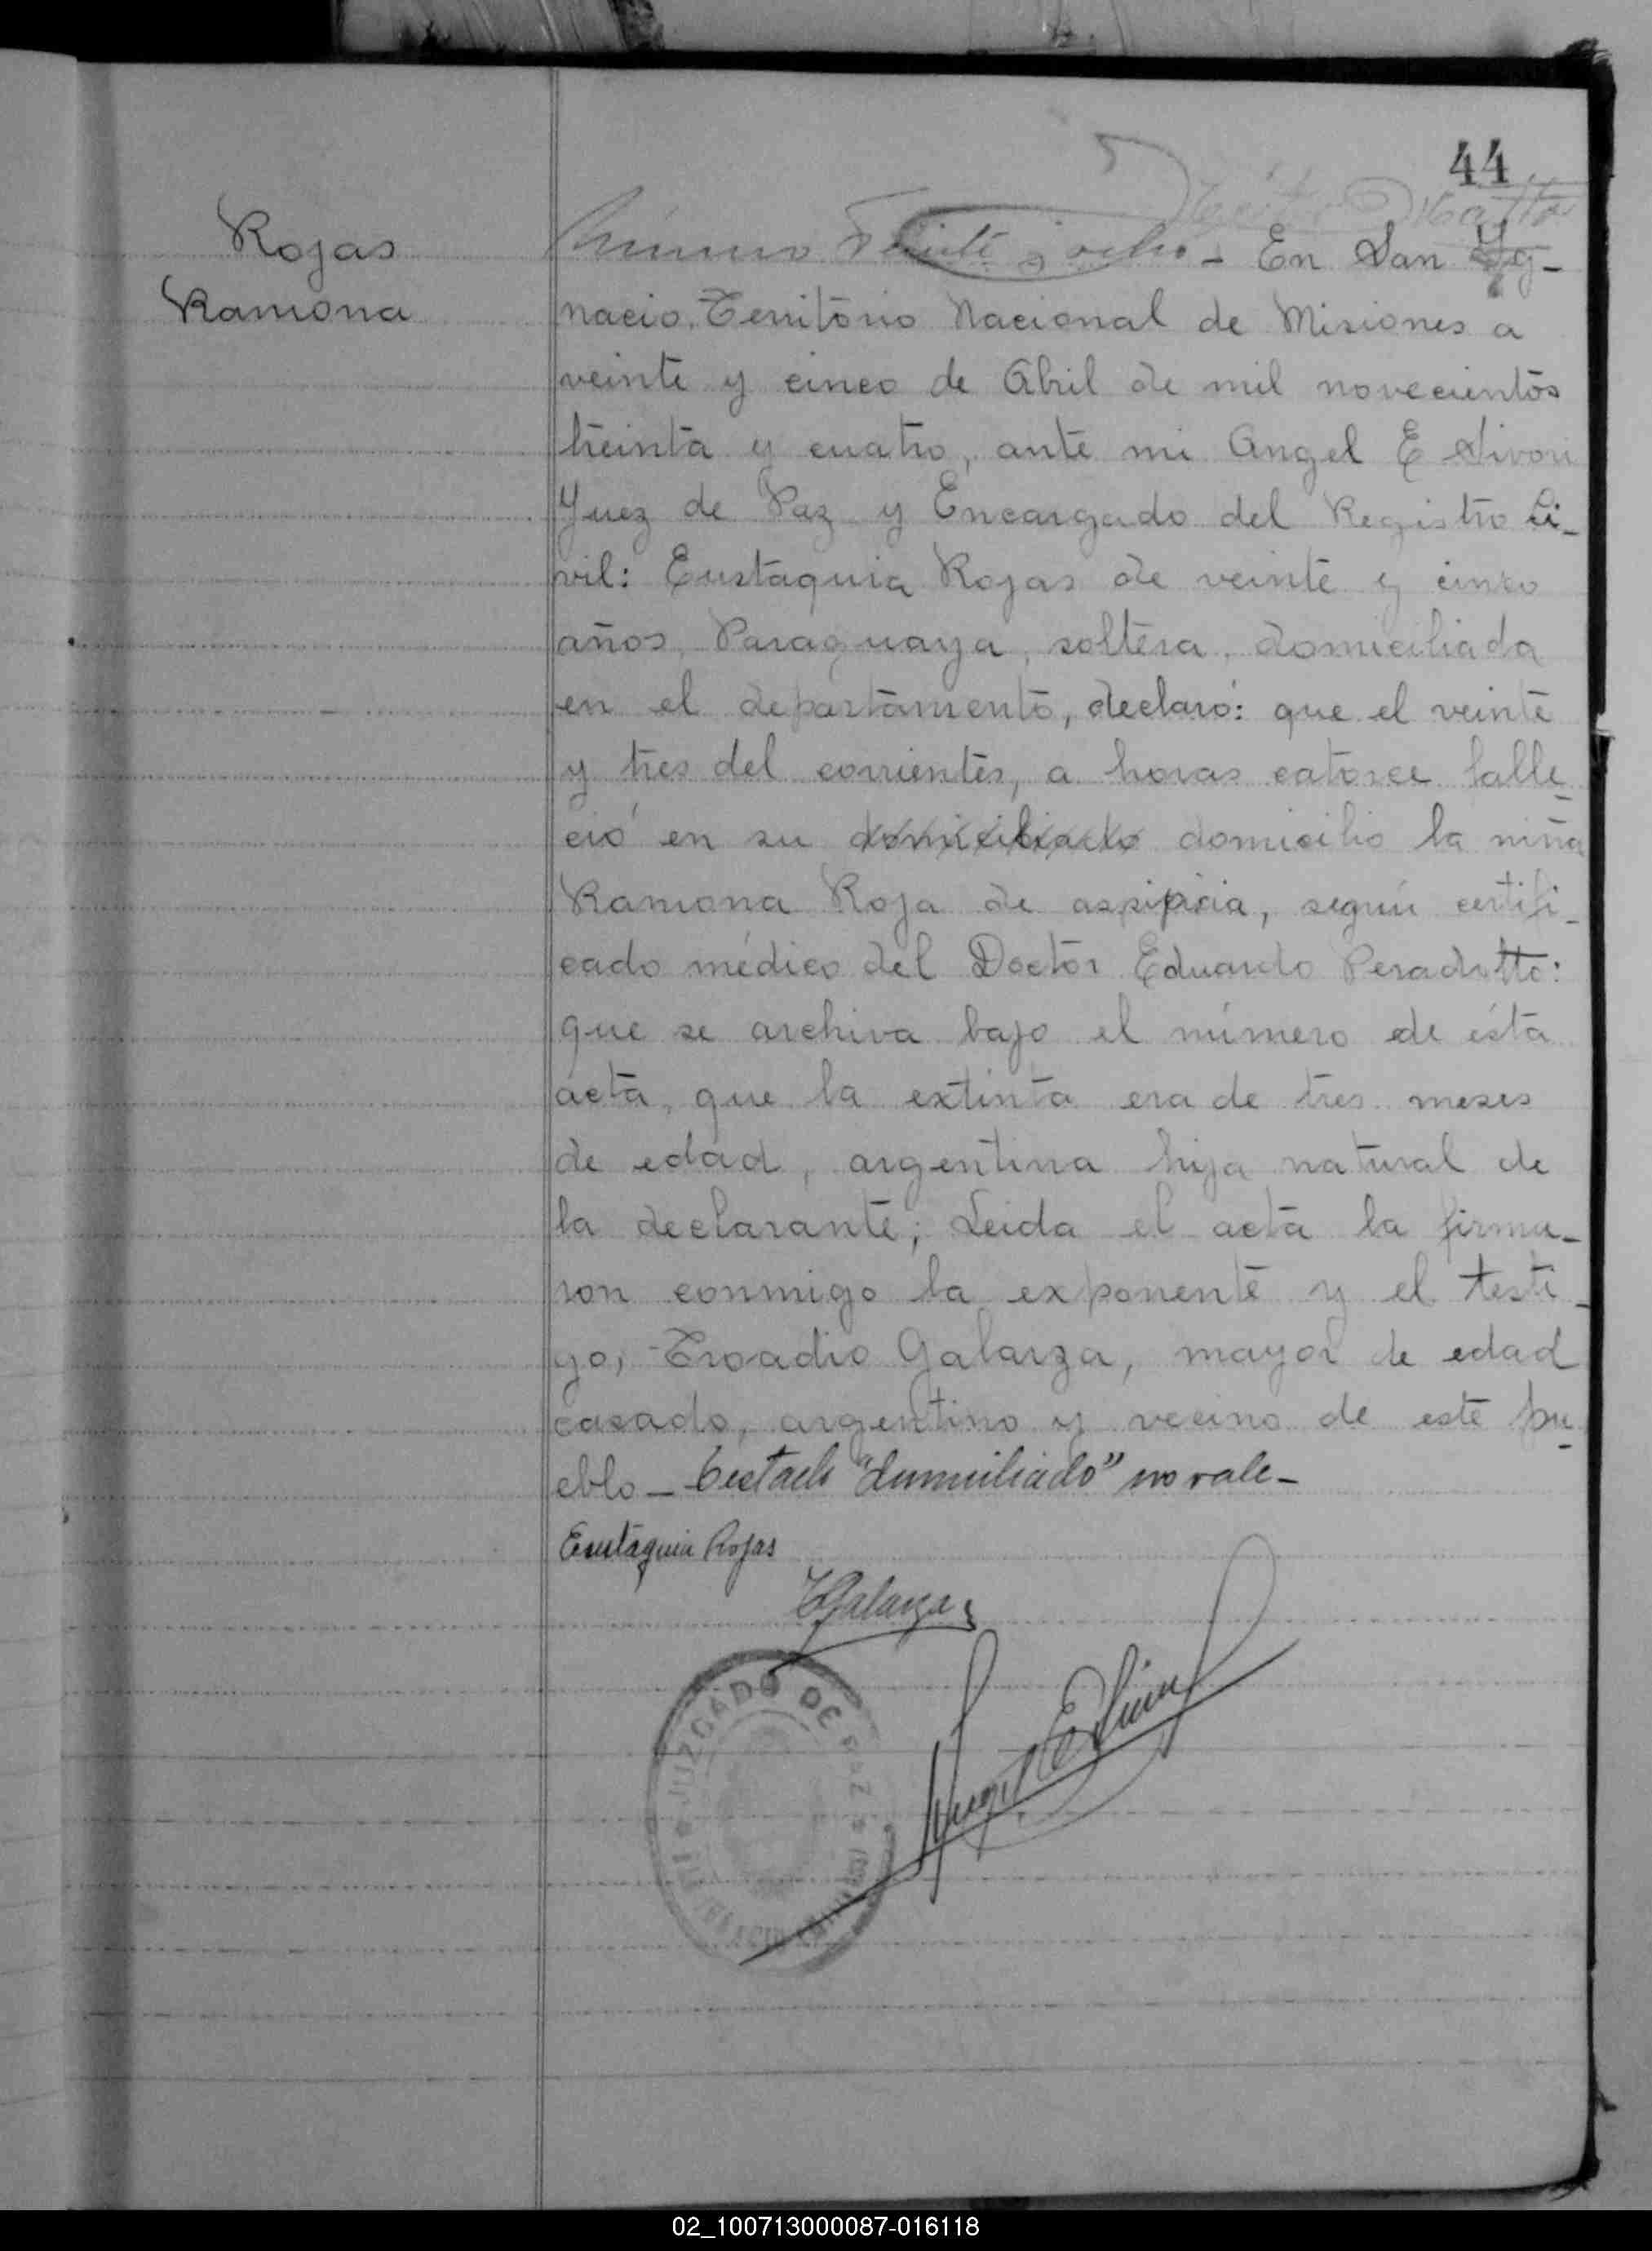 44
Rojas
Ramona
Número Veinte y ocho - En San Yg-
nacio, Territorio Nacional de Misiones a
veinte y cinco de Abril de mil novecientos
treinta y cuatro, ante mi Angel E Sivori
Juez de Paz y Encargado del Registro Ci-
vil: Eustaquia Rojas de veinte y cinco
años, Paraguaya, soltera, domiciliada
en el departamento, declaró: que el veinte
y tres del corrientes, a horas catorce falle-
ció en su domiciliado domicilio la niña
Ramona Roja de aspipicia, según certifi-
cado médico del Doctor Eduardo Peradotto:
que se archiva bajo el número de ésta
acta, que la extinta era de tres meses
de edad, argentina hija natural de
la declarante; Leida el acta la firma-
ron conmigo la exponente y el testi-
go, Troadio Galarza, mayor de edad
casado, argentino y vecino de este pu-
eblo - Testado "domiciliado" no vale -
Eustaquia Rojas
TGalarza
Angel E Sivori
JUZGADO DE PAZ
02_100713000087-016118